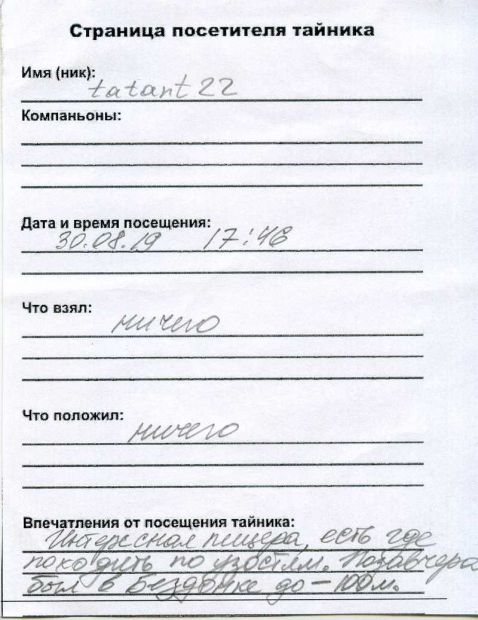 Страница посетителя тайника
Имя (ник):
tatant22
Компаньоны:
Дата и время посещения:
30.08.19 17:46
Что взял:
ничего
Что положил:
ничего
Впечатления от посещения тайника:
Интересная пещера, есть где
походить по узостям. Позавчера
был в Бездонке до -100м.